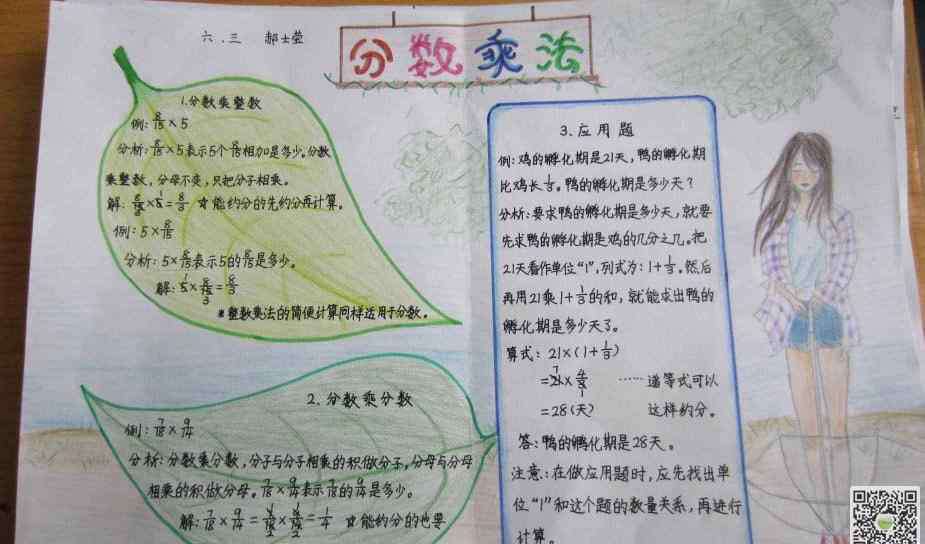 六.三 郝士莹
分数乘法
1.分数乘整数
例:8/15×5
分析:8/15×5表示5个8/15相加是多少。分数
乘整数,分母不变,只把分子相乘。
解:8/15×5=8/3 ☆能约分的先约分再计算。
例:5×8/15
分析:5×8/15表示5的8/15是多少。
解:5×8/15=8/3
※整数乘法的简便计算同样适用于分数。
2.分数乘分数
例:7/18×9/14
分析:分数乘分数,分子与分子相乘的积做分子,分母与分母
相乘的积做分母。7/18×9/14表示7/18的9/14是多少。
解:7/18×9/14=7/18×9/14=1/4 ☆能约分的也要
3.应用题
例:鸡的孵化期是21天,鸭的孵化期
比鸡长1/3。鸭的孵化期是多少天?
分析:要求鸭的孵化期是多少天,就要
先求鸭的孵化期是鸡的几分之几。把
21天看作单位“1”,列式为:1+1/3。然后
再用21乘1+1/3的和,就能求出鸭的
孵化期是多少天了。
算式:21×(1+1/3)
=21×4/3 ……递等式可以
=28(天) 这样约分。
答:鸭的孵化期是28天。
注意:在做应用题时,应先找出单
位“1”和这个题的数量关系,再进行
计算。